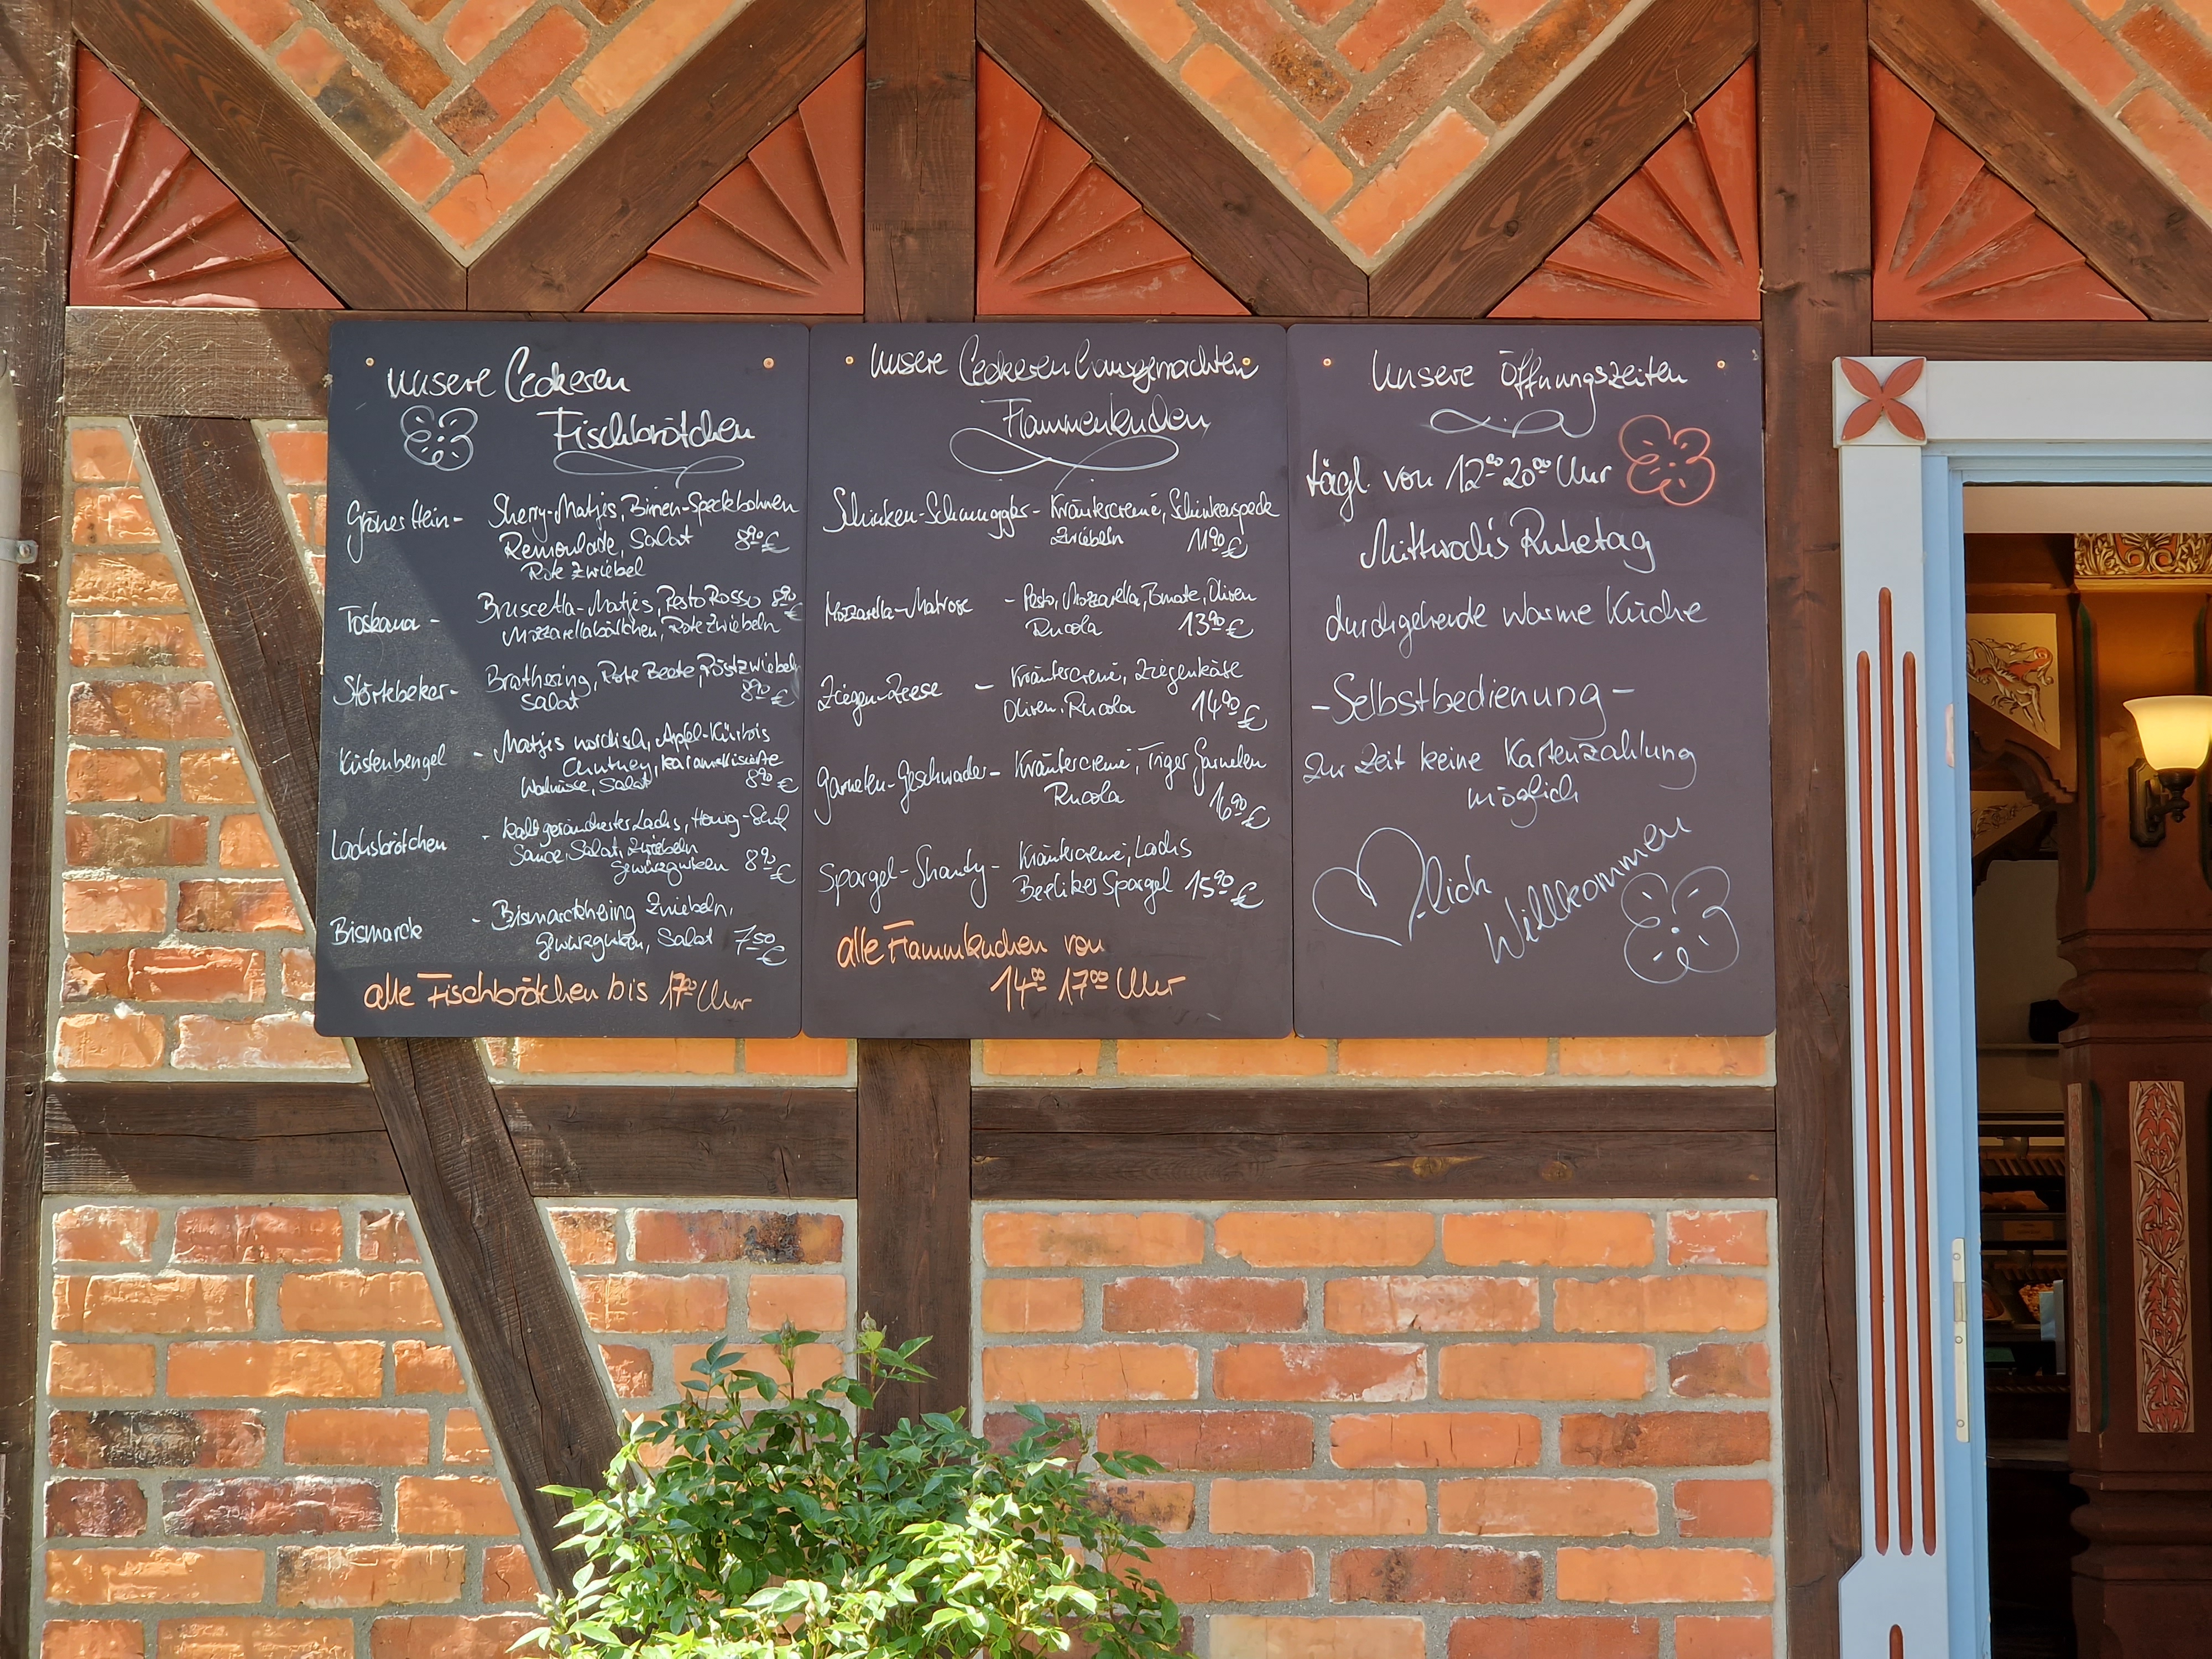 unsere leckeren
Fischbrötchen
Grönes Hein - Sherry-Matjes, Birnen-Speckbohnen
Remoulade, Salat 8,90 €
Rote Zwiebel
Toskana - Bruscetta-Matjes, Pesto Rosso 8,90 €
Mozzarellabällchen, Rote Zwiebeln
Störtebeker - Brathering, Rote Beete, Röstzwiebel
Salat 8,90 €
Küstenbengel - Matjes nordisch, Apfel-Kürbis
Chutney, karamellisierte
Walnüsse, Salat 8,90 €
Lachsbrötchen - kalt geräucherter Lachs, Honig-Senf
Sauce, Salat, Zwiebeln
Gewürzgurken 8,90 €
Bismarck - Bismarckhering Zwiebeln,
Gewürzgurken, Salat 7,50 €
alle Fischbrötchen bis 17⁰⁰ Uhr
unsere leckeren hausgemachten
Flammenkuchen
Schinken-Schmuggler - Kräutercreme, Schinkenspeck
Zwiebeln 11,90 €
Mozzarella-Matrose - Pesto, Mozzarella, Tomate, Oliven
Rucola 13,90 €
Ziegen-Zeese - Kräutercreme, Ziegenkäse
Oliven, Rucola 14,90 €
Garnelen-Geschwader - Kräutercreme, Tiger Garnelen
Rucola 16,90 €
Spargel-Shanty - Kräutercreme, Lachs
Beelitzer Spargel 15,90 €
alle Flammkuchen von
14⁰⁰ 17⁰⁰ Uhr
Unsere Öffnungszeiten
tägl. von 12⁰⁰-20⁰⁰ Uhr
Mittwochs Ruhetag
durchgehende warme Küche
-Selbstbedienung-
Zur Zeit keine Kartenzahlung
möglich
-lich
Willkommen